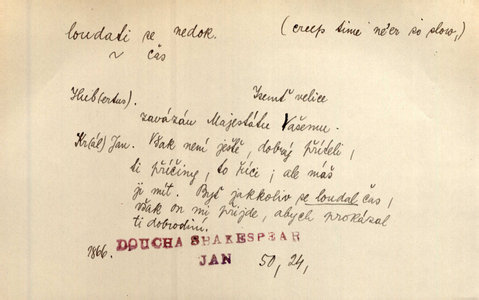 loudati se nedok. (creep time ne'er so slow,)
~ čas
Hub(ertus). Jsemť velice
zavázán Majestátu Vašemu.
Kr(ál) Jan. Však není ještě, dobrý příteli,
ti příčiny, to říci; ale máš
ji mít. Byť jakkoliv se loudal čas,
však on mi přijde, abych prokázal
ti dobrodiní.
1866. DOUCHA SHAKESPEAR
JAN 50, 24,